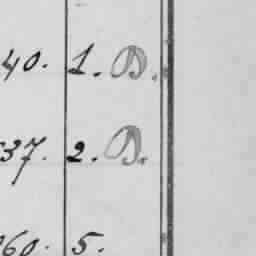 40. 1. B.
37. 2. B.
60. 5.